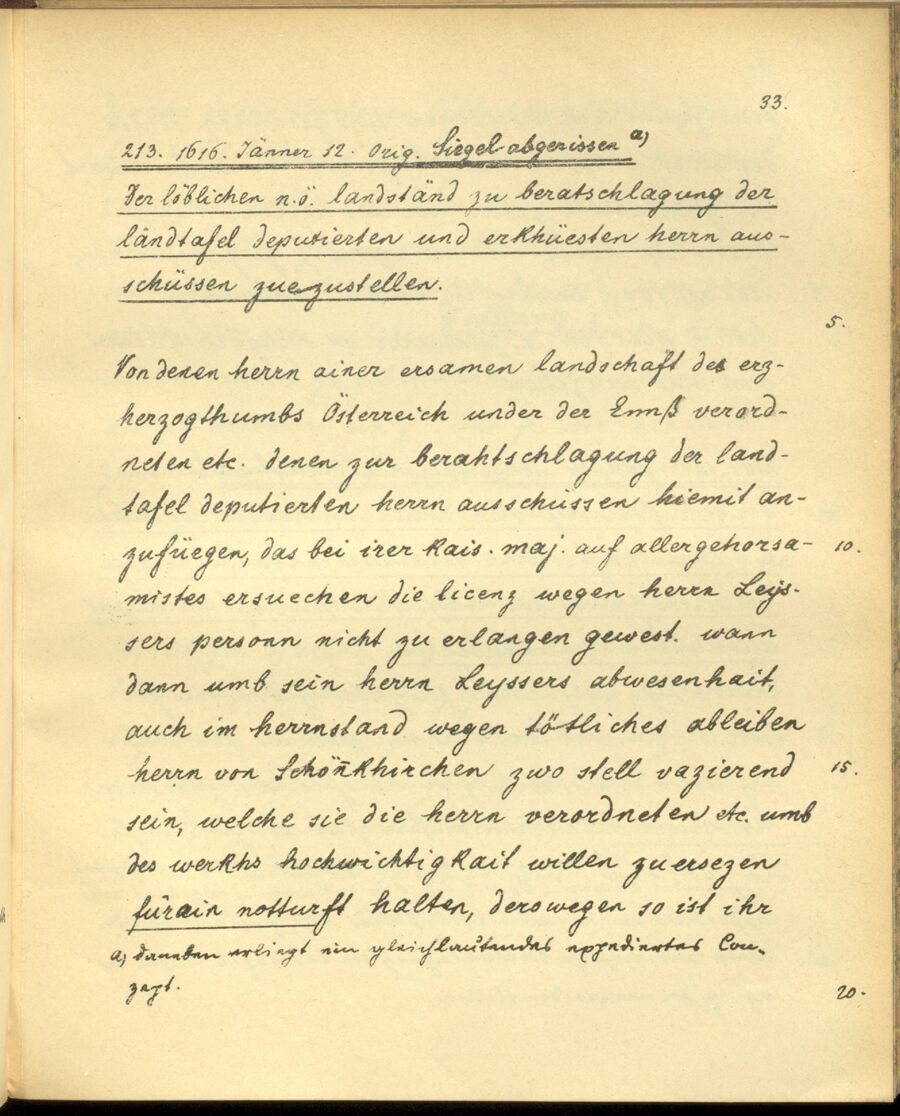 33.
213. 1616. Jänner 12. Orig. Siegel abgerissen a)
Der löblichen n.ö. landständ zu beratschlagung der
ländtafel deputierten und erkhüesten herrn aus-
schüssen zuezustellen.
5.
Von denen herrn ainer ersamen landschaft des erz-
herzogthumbs Österreich under der Ennß verord-
neten etc. denen zur berahtschlagung der land-
tafel deputierten herrn ausschüssen hiemit an-
zufüegen, das bei irer kais. maj. auf allergehorsa- 10.
mistes ersuechen die licenz wegen herrn Leys-
sers personn nicht zu erlangen gewest. wann
dann umb sein herrn Leyssers abwesenhait,
auch im herrnstand wegen tötliches ableiben
herrn von Schönnkhirchen zwo stell vazierend 15.
sein, welche sie die herrn verordneten etc. umb
des werkhs hochwichtigkait willen zuersezen
fürain notturft halten, derowegen so ist ihr
a) daneben erliegt ein gleichlautendes expediertes Con-
zept. 20.